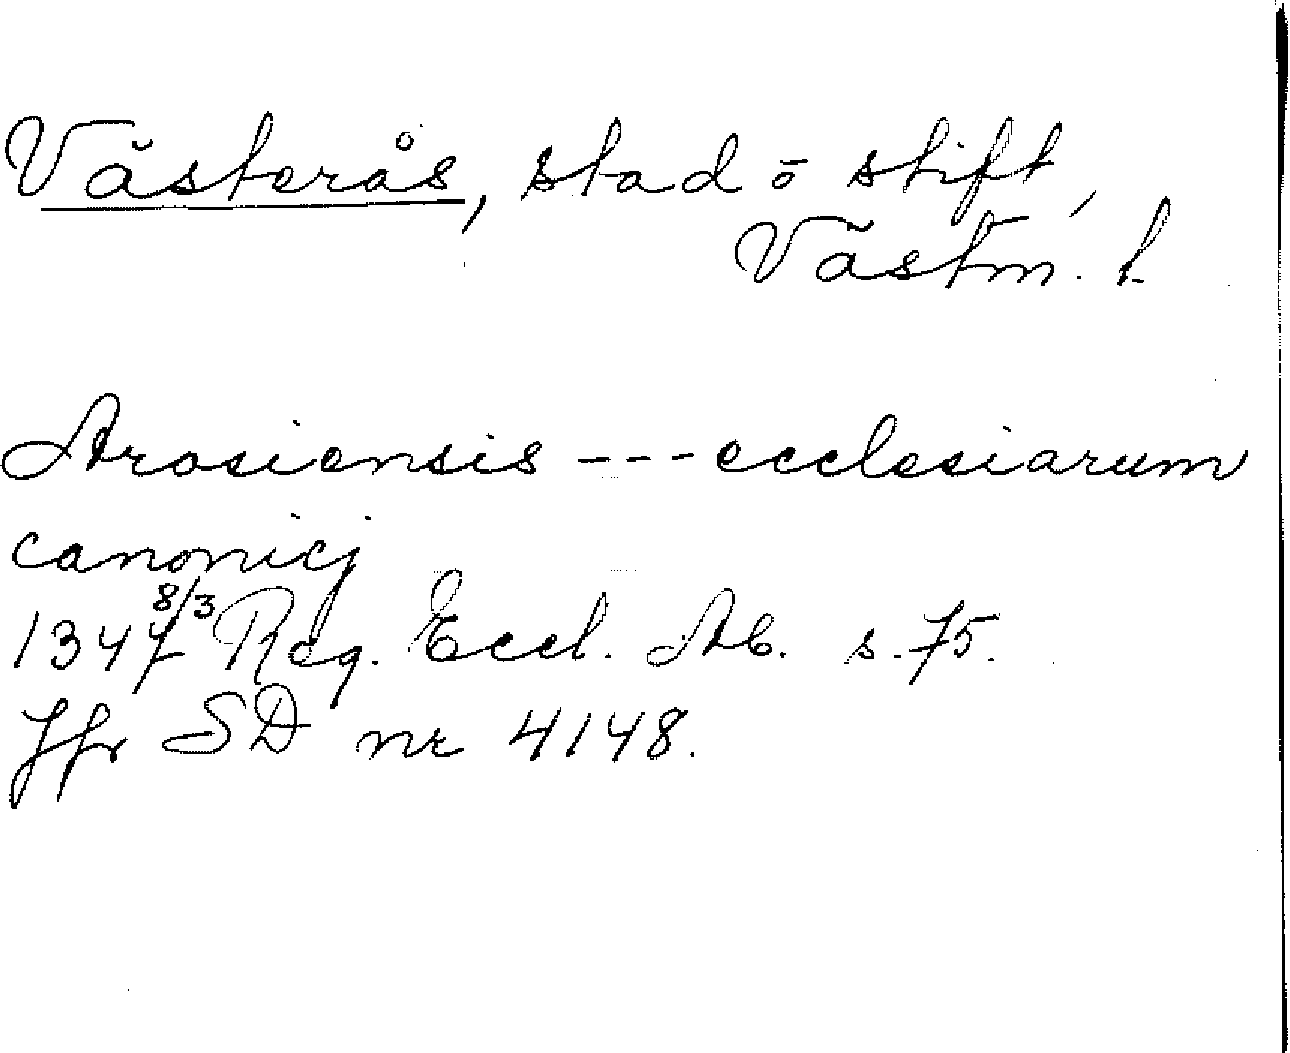 Västerås, stad ō stift,
Västm. l.
Arosiensis --- ecclesiarum
canonicj
1347 8/3 Reg. Eccl. Ab. s. 75.
Jfr SD nr 4148.